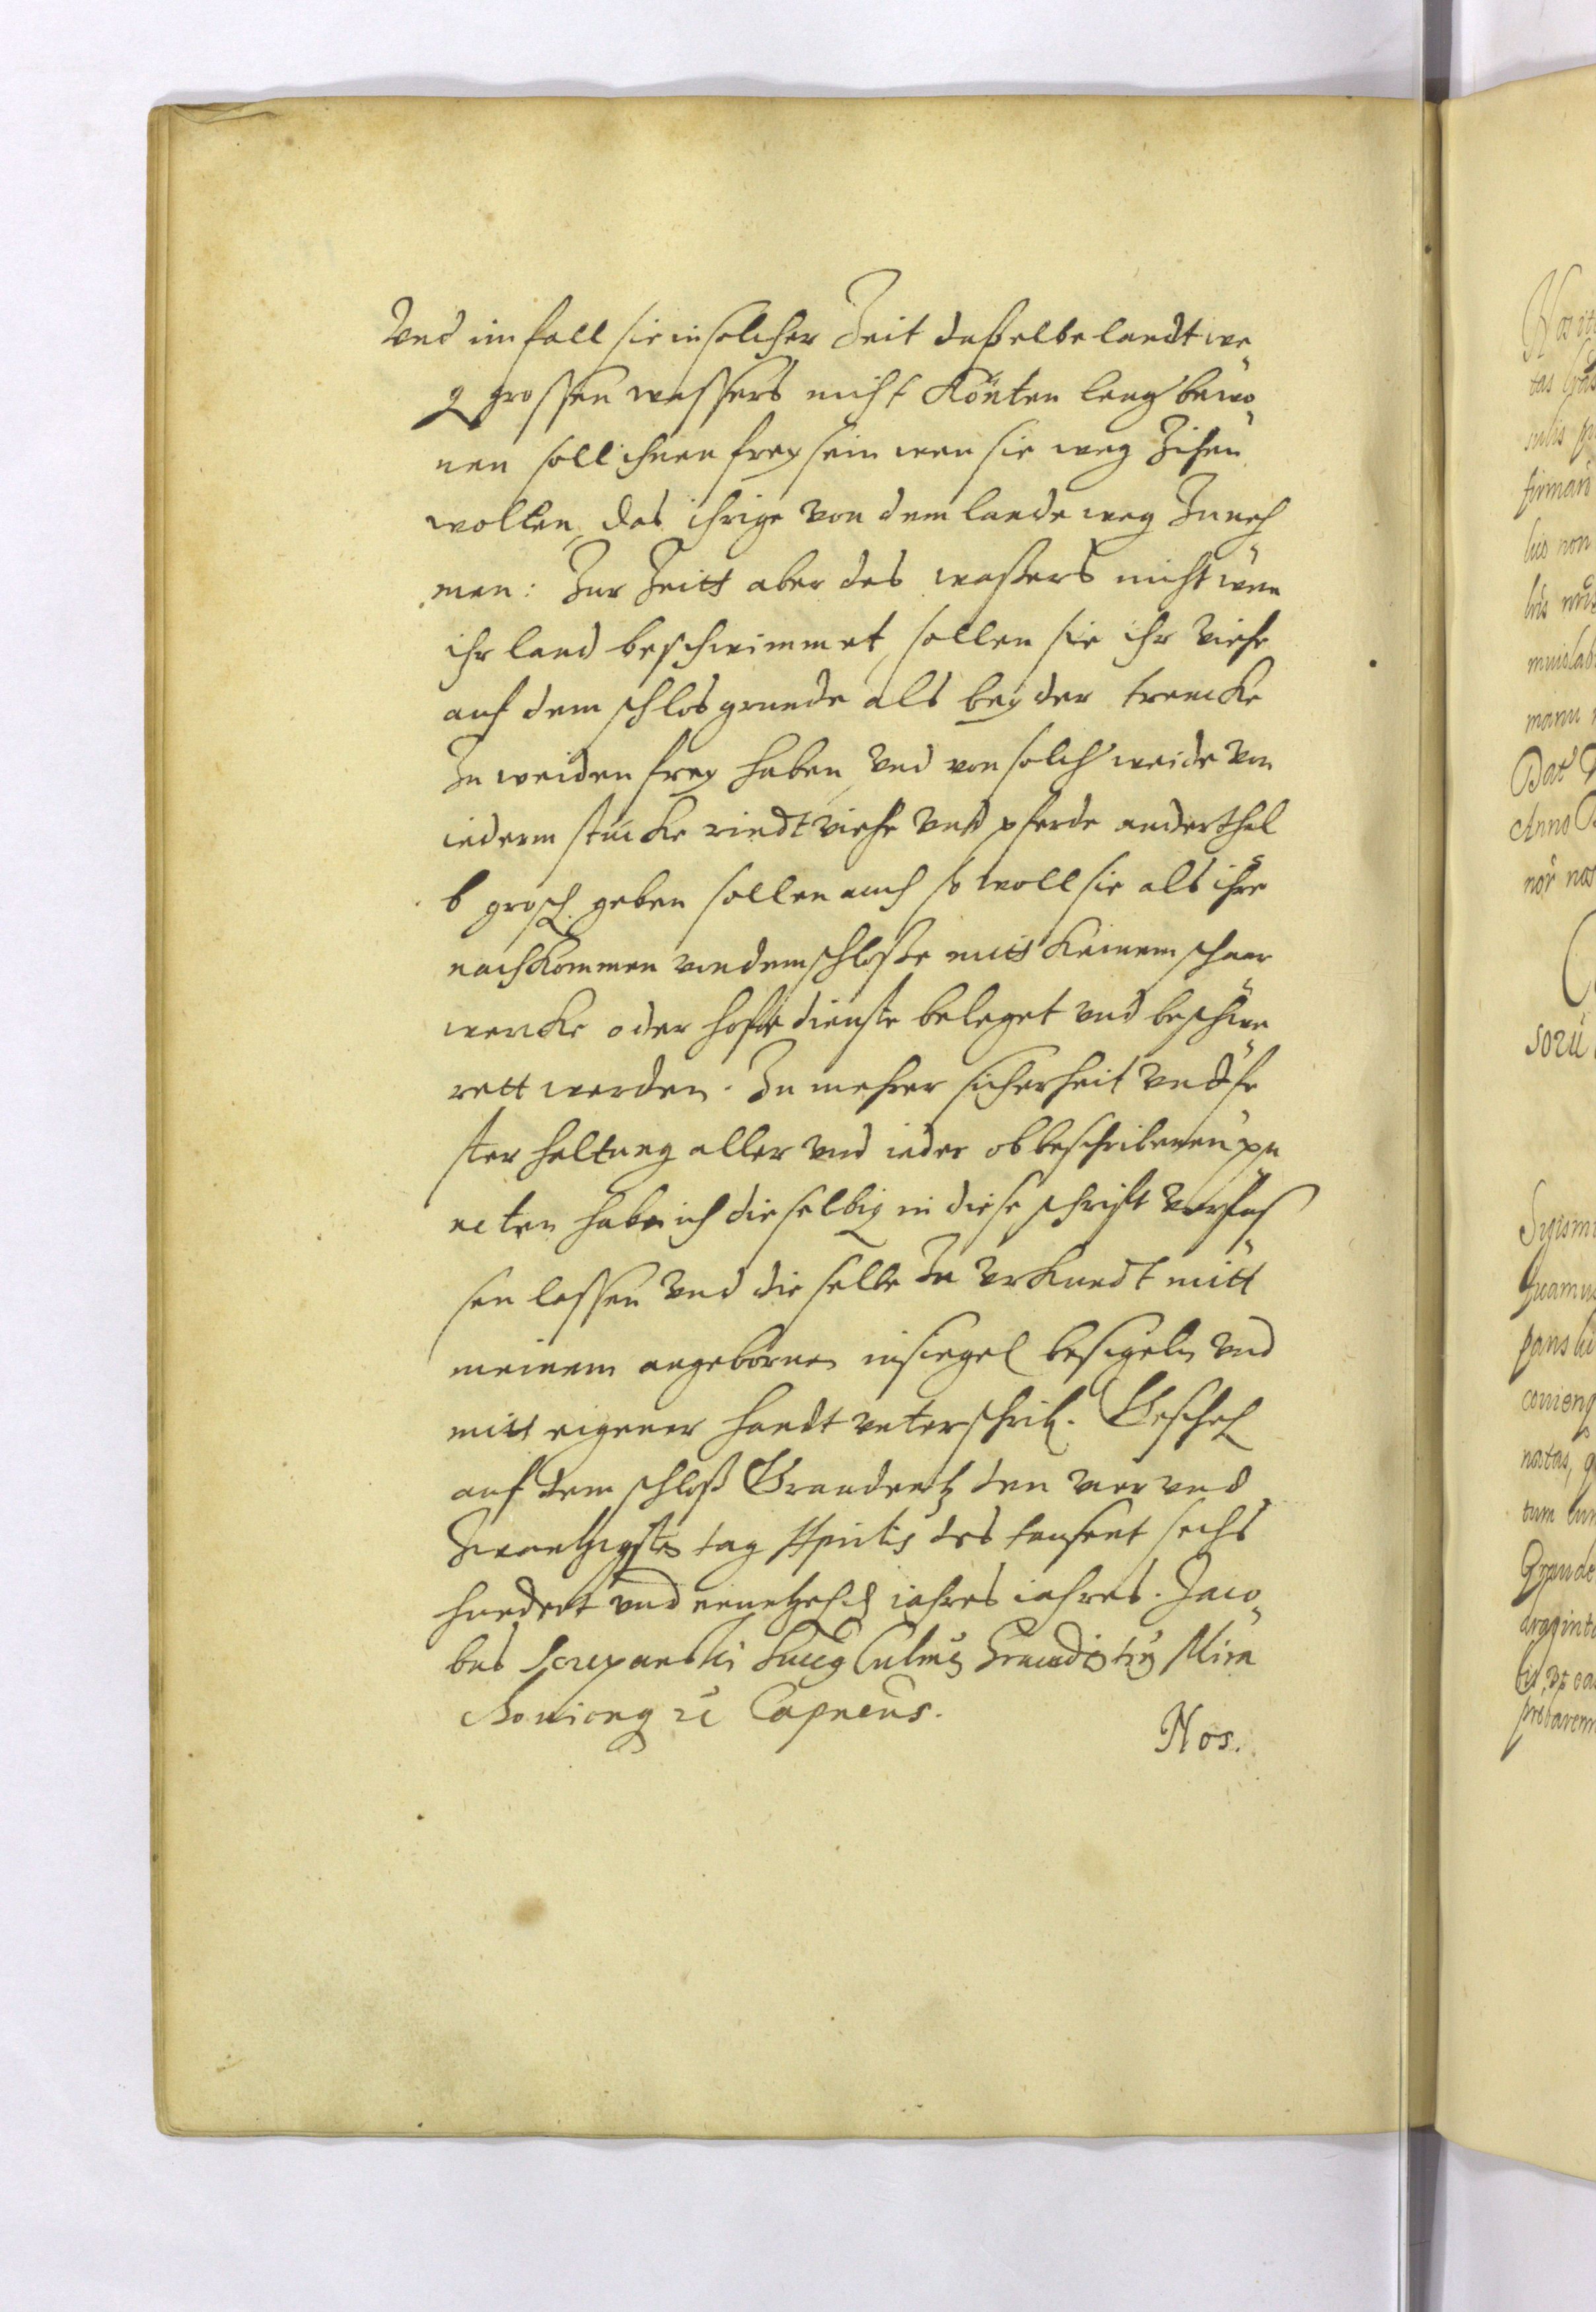 Vnd im fall sie in solcher Zeit daßelbe landt we
g grossen wassers nicht Könten lang bewo
nen soll ihnen frey sein wen sie weg Zihen
wollen, das ihrige von dem lande weg Zu neh
men: Zur Zeitt aber des waßers nicht wen
ihr land beschwimmet, sollen sie ihr viehe
auf dem schlosgrunde als bey der trencke
Zu weiden frey haben, vnd von solch weide von
iederm stücke rindt viehe vnd pferde anderthal
b grosch. geben sollen auch so woll sie als ihre
nachkommen von dem schloße mitt keinem schaar
wercke oder hofe dienste beleget vnd beschwe
rett werden. Zu mehrer sicherheit vnd fe
ster haltung aller vnd ieder obbeschribenen pu
ncten habe ich dieselbig in diese schrift verfas
sen lassen vnd die selbe Zu Vrkundt mitt
meinem angebornen insiegel besigeln vnd
mitt eigener handt vnterschrib. Gescheh
auf dem schloß Graudentz den vier vnd
Zwantzigsten tag Aprilis des tausent sechs
hundert vnd neuntzeh iahres iahres. Jaco
bus Sczepanski Culmen
Capneus.
Nos.